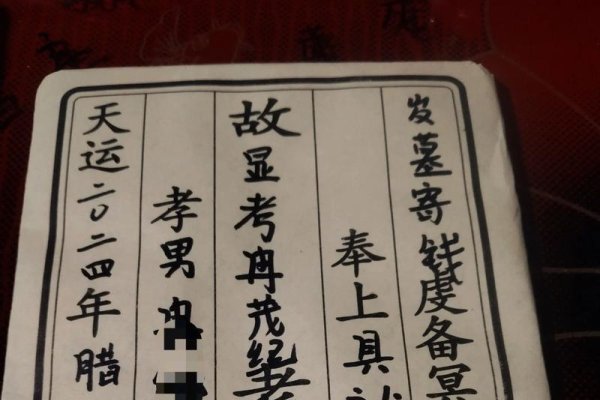 发墓寄钱虔备冥
奉上具
故显考冉茂纪老
孝男冉
天运二〇二四年腊